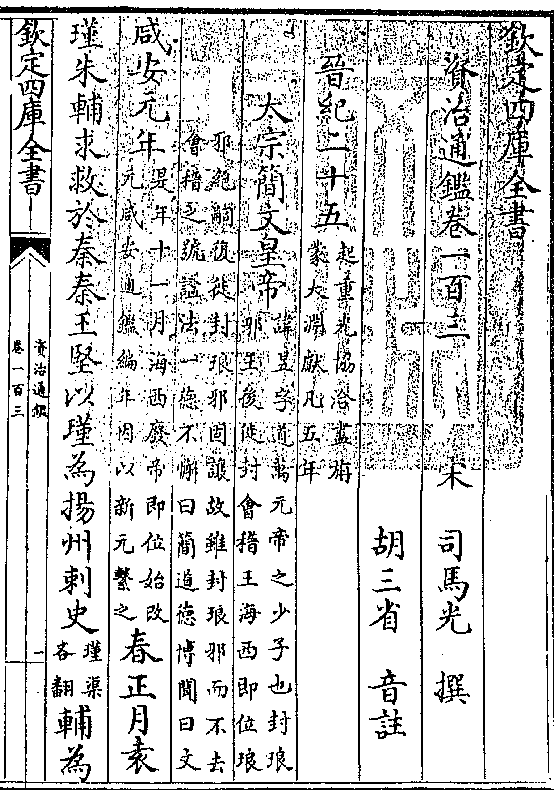 欽定四庫全書
資治通鑑卷一百三 宋 司馬光 撰
胡三省 音註
晉紀二十五 起重光協洽盡旃
蒙大淵獻凡五年
太宗簡文皇帝 諱昱字道萬元帝之少子也封琅
邪王後徙封會稽王海西即位琅
邪絶嗣復徙封琅邪固讓故雖封琅邪而不去
會稽之號諡法一德不懈曰簡道德博聞曰文
咸安元年 是年十一月海西廢帝即位始改
元咸安通鑑編年因以新元繫之 春正月袁
瑾朱輔求救於秦秦王堅以瑾為揚州刺史 瑾渠
吝翻 輔為
欽定四庫全書
資治通鑑
卷一百三
一